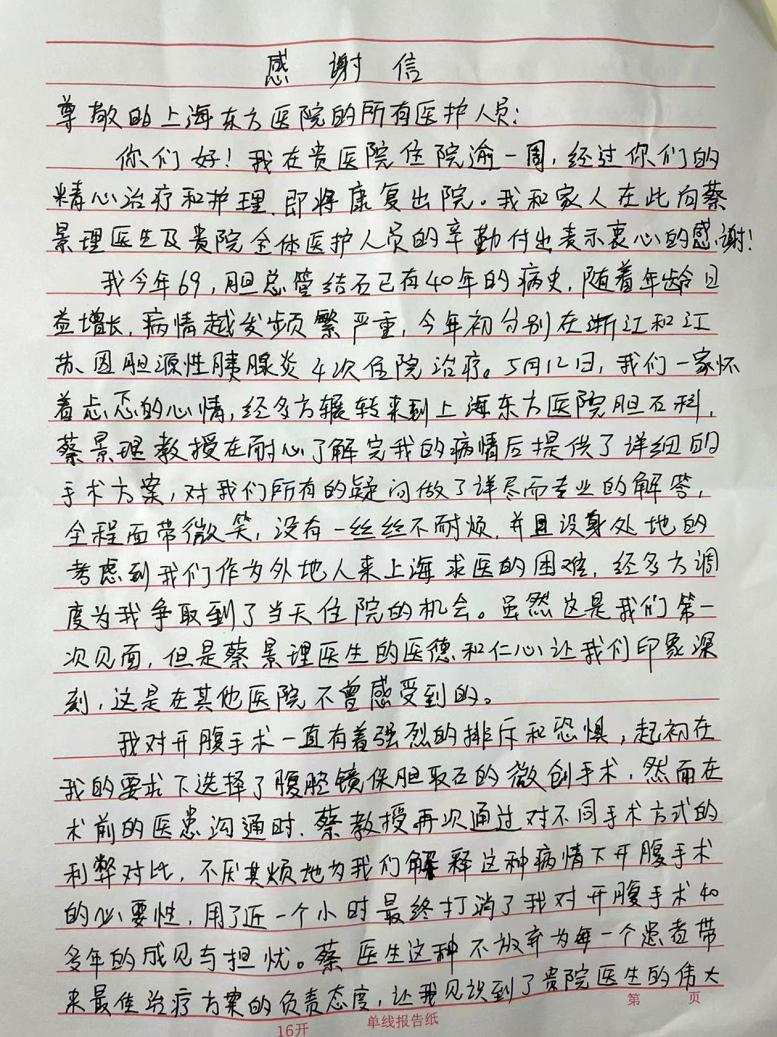 感谢信
尊敬的上海东方医院的所有医护人员:
你们好!我在贵医院住院逾一周,经过你们的
精心治疗和护理,即将康复出院。我和家人在此向蔡
景理医生及贵院全体医护人员的辛勤付出表示衷心的感谢!
我今年69,胆总管结石已有40年的病史,随着年龄日
益增长,病情越发频繁严重,今年初分别在浙江和江
苏、因胆源性胰腺炎4次住院治疗。5月12日,我们一家怀
着忐忑的心情,经多方辗转来到上海东方医院胆石科,
蔡景理教授在耐心了解完我的病情后提供了详细的
手术方案,对我们所有的疑问做了详尽而专业的解答,
全程面带微笑,没有一丝丝不耐烦,并且设身处地的
考虑到我们作为外地人来上海求医的困难,经多方调
度为我争取到了当天住院的机会。虽然这是我们第一
次见面,但是蔡景理医生的医德和仁心让我们印象深
刻,这是在其他医院不曾感受到的。
我对开腹手术一直有着强烈的排斥和恐惧,起初在
我的要求下选择了腹腔镜保胆取石的微创手术,然而在
术前的医患沟通时,蔡教授再次通过对不同手术方式的
利弊对比,不厌其烦地为我们解释这种病情下开腹手术
的必要性,用了近一个小时最终打消了我对开腹手术40
多年的成见与担忧。蔡医生这种不放弃为每一个患者带
来最佳治疗方案的负责态度,让我见识到了贵院医生的伟大
第 页
16开 单线报告纸